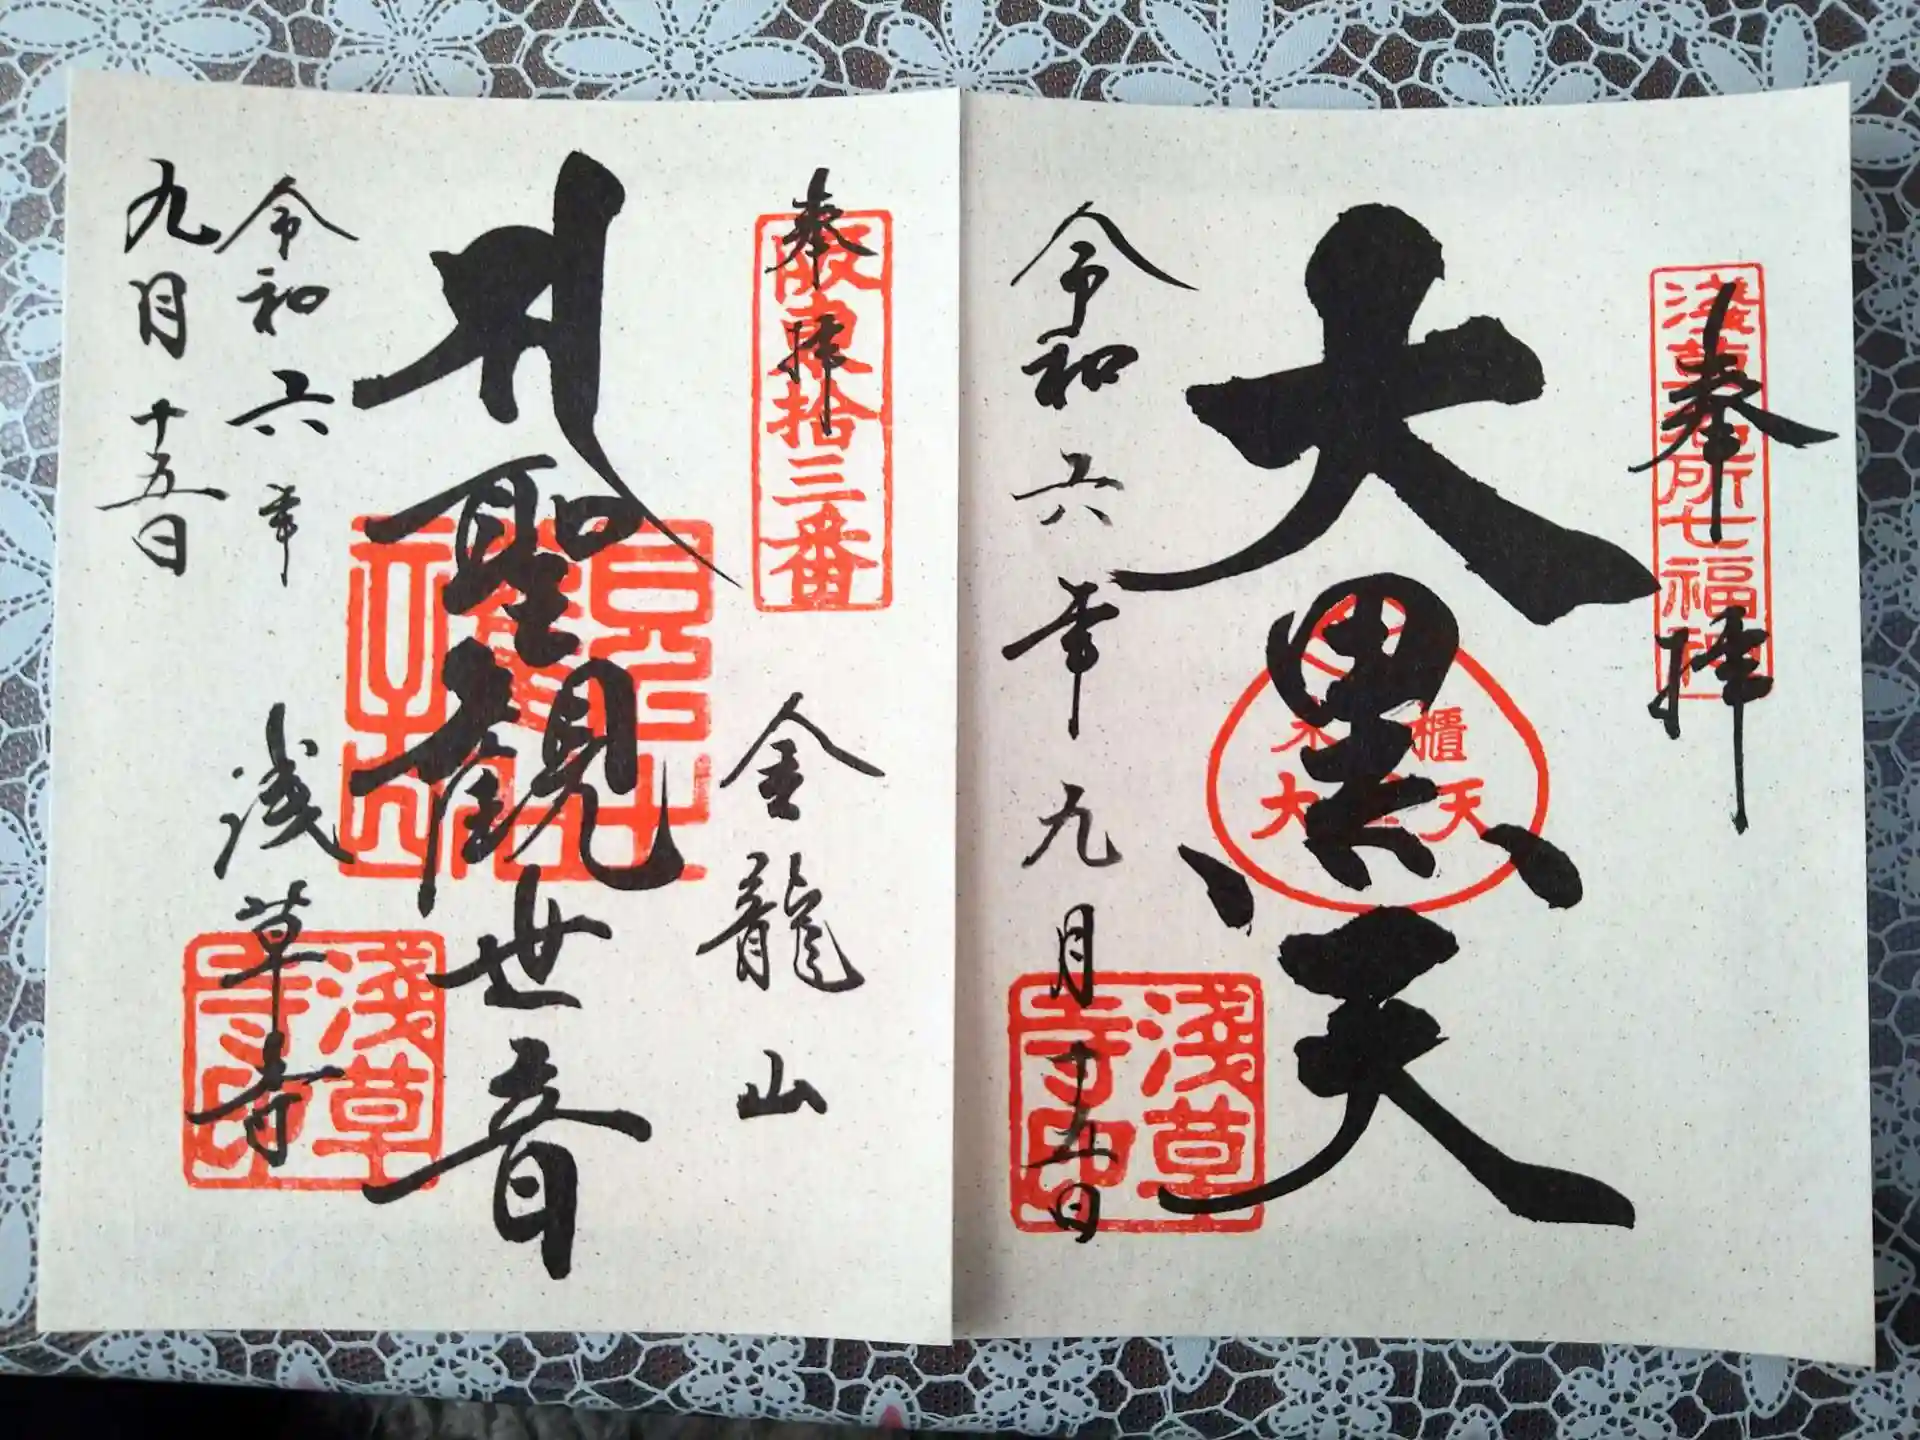 奉拝
浅草名所七福神
大黒天
米櫃
大黒天
令和六年九月十五日
浅草寺印
奉拝
阪東拾三番
金龍山
聖観世音
令和六年
九月十五日
浅草寺
浅草寺印